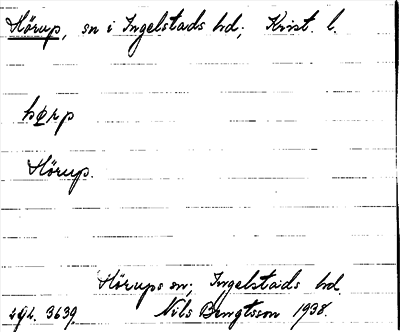 Hörup, sn i Ingelstads hd; Krist. l.
hørp
Hörup.
Hörups sn; Ingelstads hd.
acc. 3639 Nils Bengtsson 1938.